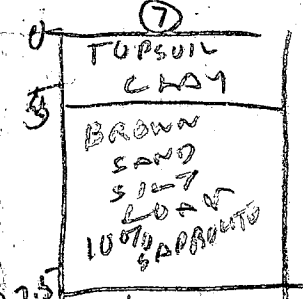 7
0
TOPSOIL
CLAY
BROWN
SAND
SILT
LOAM
10% SAPROLITE